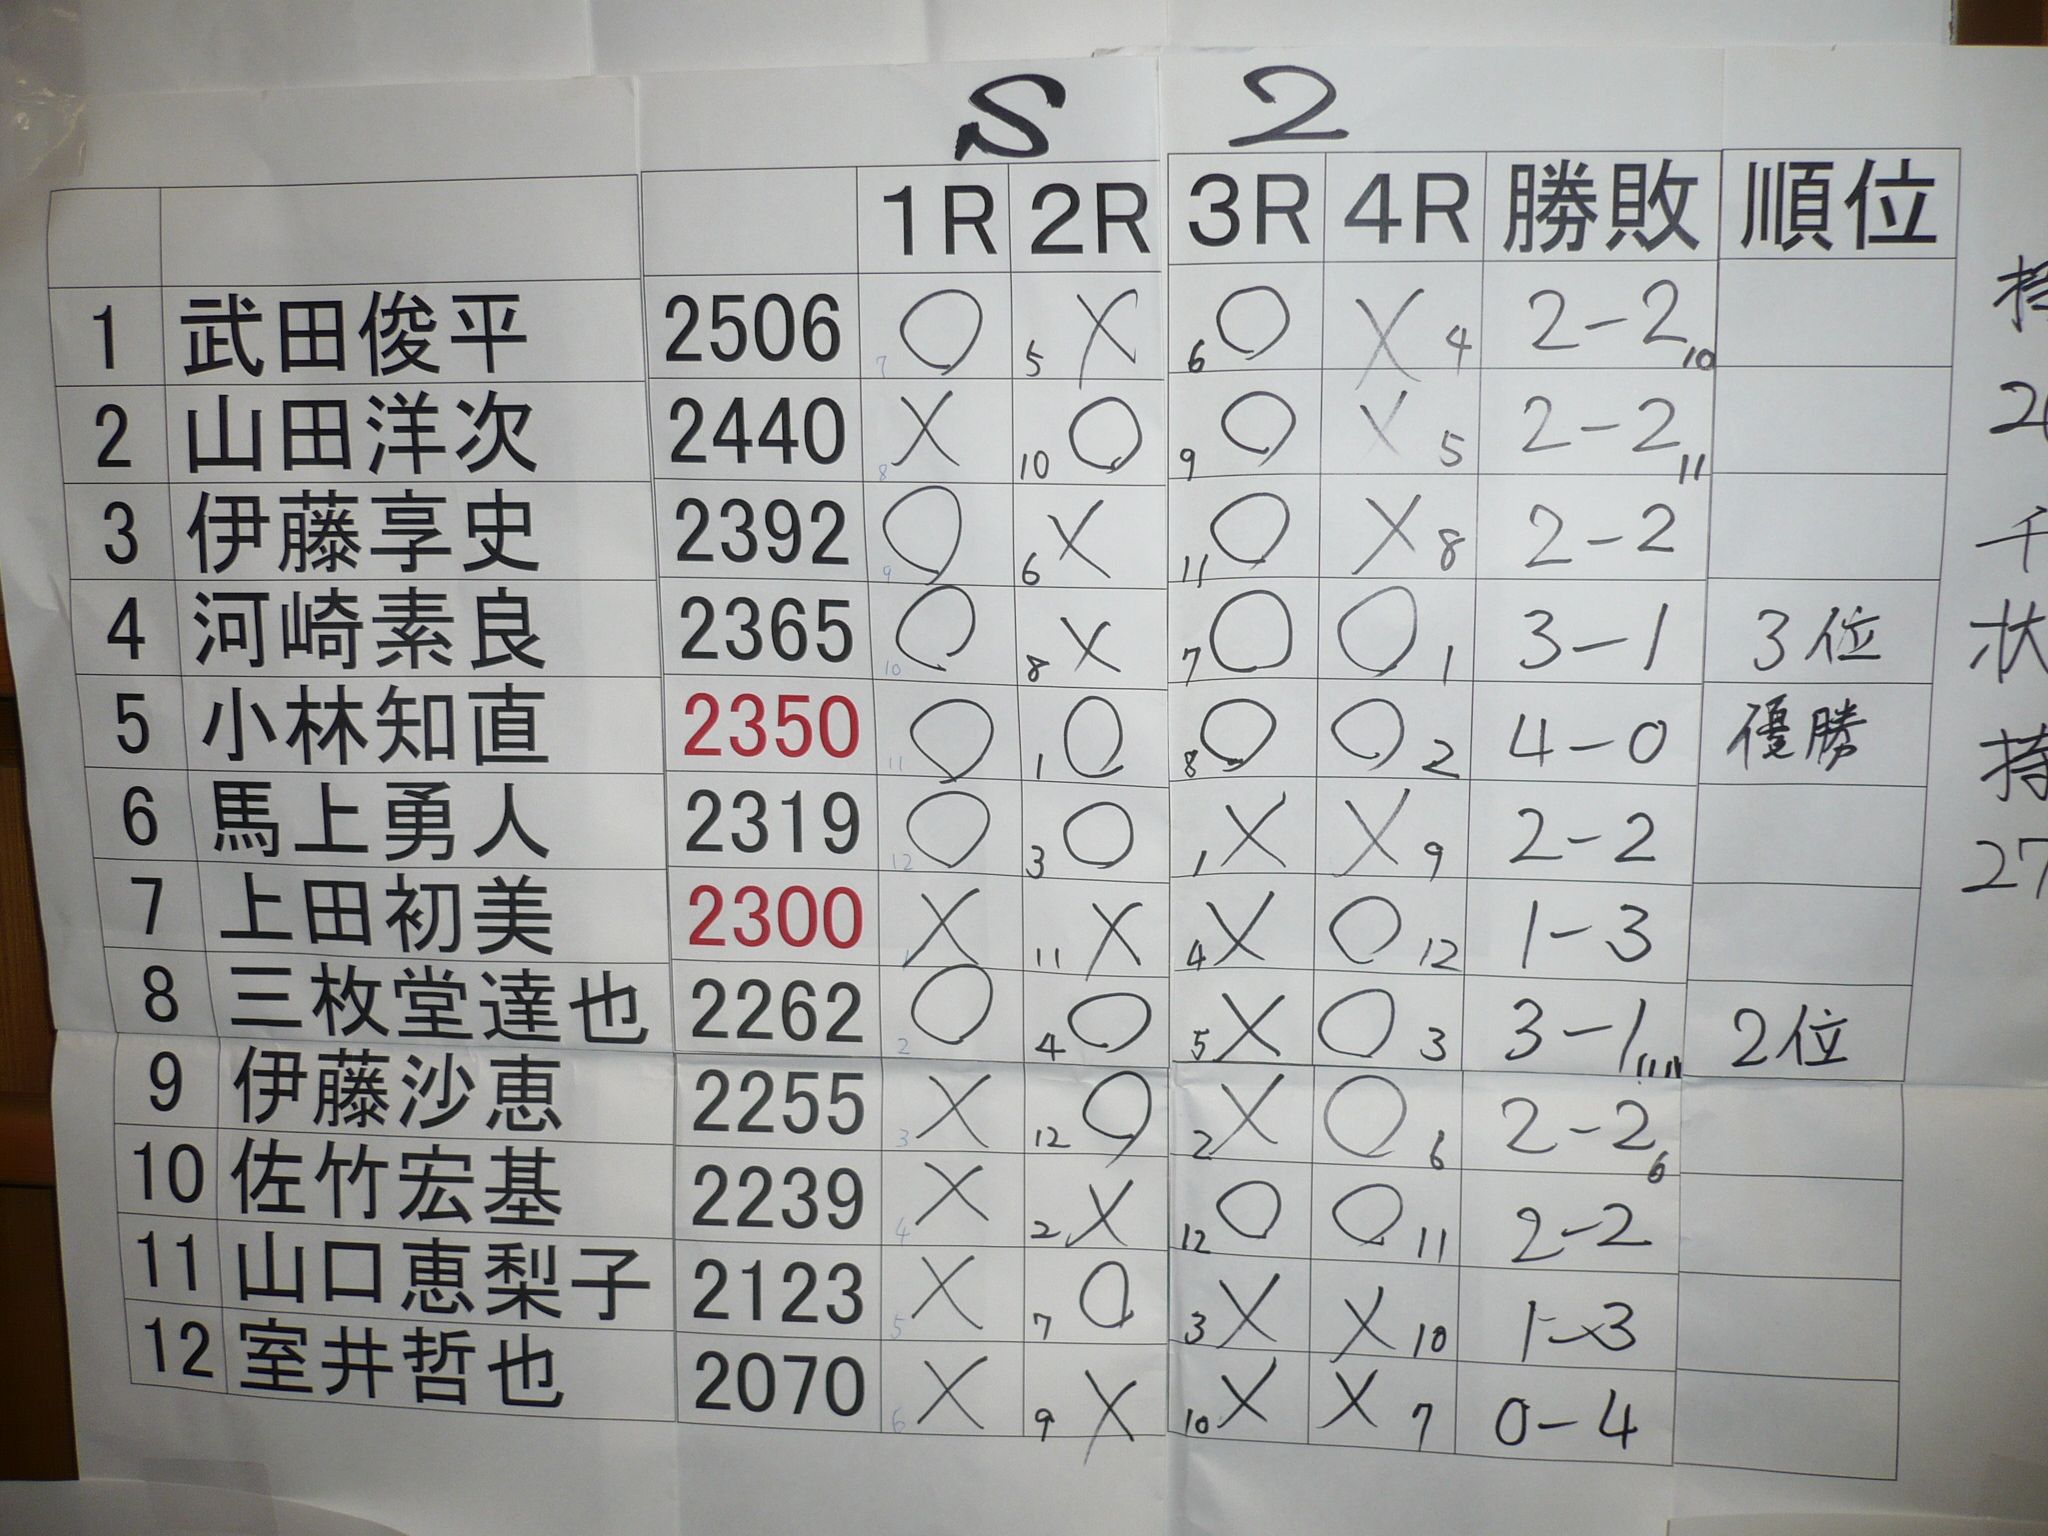 S 2
1R 2R 3R 4R 勝敗 順位
1 武田俊平 2506 7 ○ 5 × 6 ○ × 4 2-2 10
2 山田洋次 2440 8 × 10 ○ 9 ○ × 5 2-2 11
3 伊藤享史 2392 9 ○ 6 × 11 ○ × 8 2-2
4 河崎素良 2365 10 ○ 8 × 7 ○ ○ 1 3-1 3位
5 小林知直 2350 11 ○ 1 ○ 8 ○ ○ 2 4-0 優勝
6 馬上勇人 2319 12 ○ 3 ○ 1 × × 9 2-2
7 上田初美 2300 1 × 11 × 4 × ○ 12 1-3
8 三枚堂達也 2262 2 ○ 4 ○ 5 × ○ 3 3-1 2位
9 伊藤沙恵 2255 3 × 12 ○ 2 × ○ 6 2-2 6
10 佐竹宏基 2239 4 × 2 × 12 ○ ○ 11 2-2
11 山口恵梨子 2123 5 × 7 ○ 3 × × 10 1-3
12 室井哲也 2070 6 × 9 × 10 × × 7 0-4
千
状
持
27